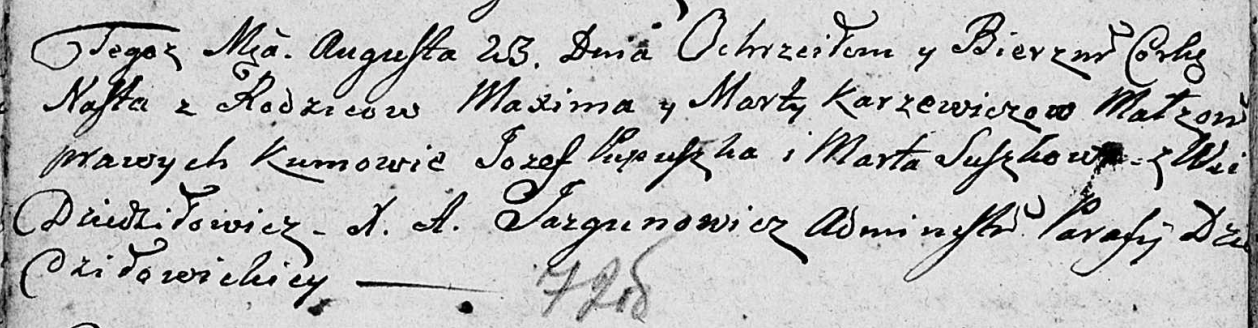 Tegoz Mca. Augusta 23. Dnia Ochrzciłem y Bierzm Corkę
Nasta z Rodzicow Maxima y Marty Karzewiczow Małzon
prawych Kumowie Jozef Papuszka i Marta Suszkowa z Wsi
Dziedziłowicz - X. A. Jazgunowicz Administr Parafij Dzie
dziłowickiey